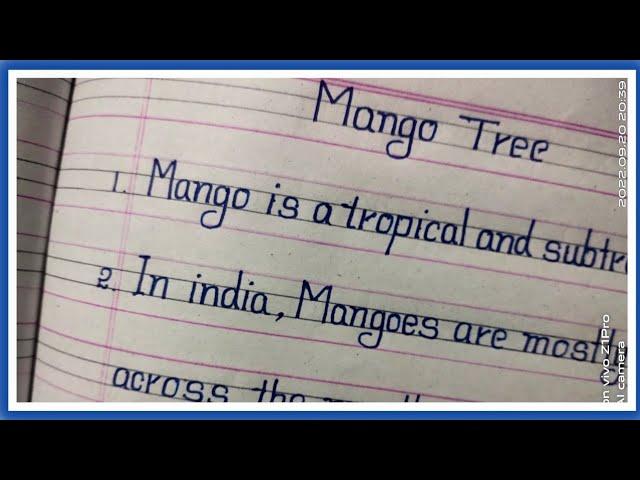 Mango Tree
1. Mango is a tropical and
2. In india, Mangoes are
across the
2022.09.20 20:39
on vivo Z1Pro
AI camera